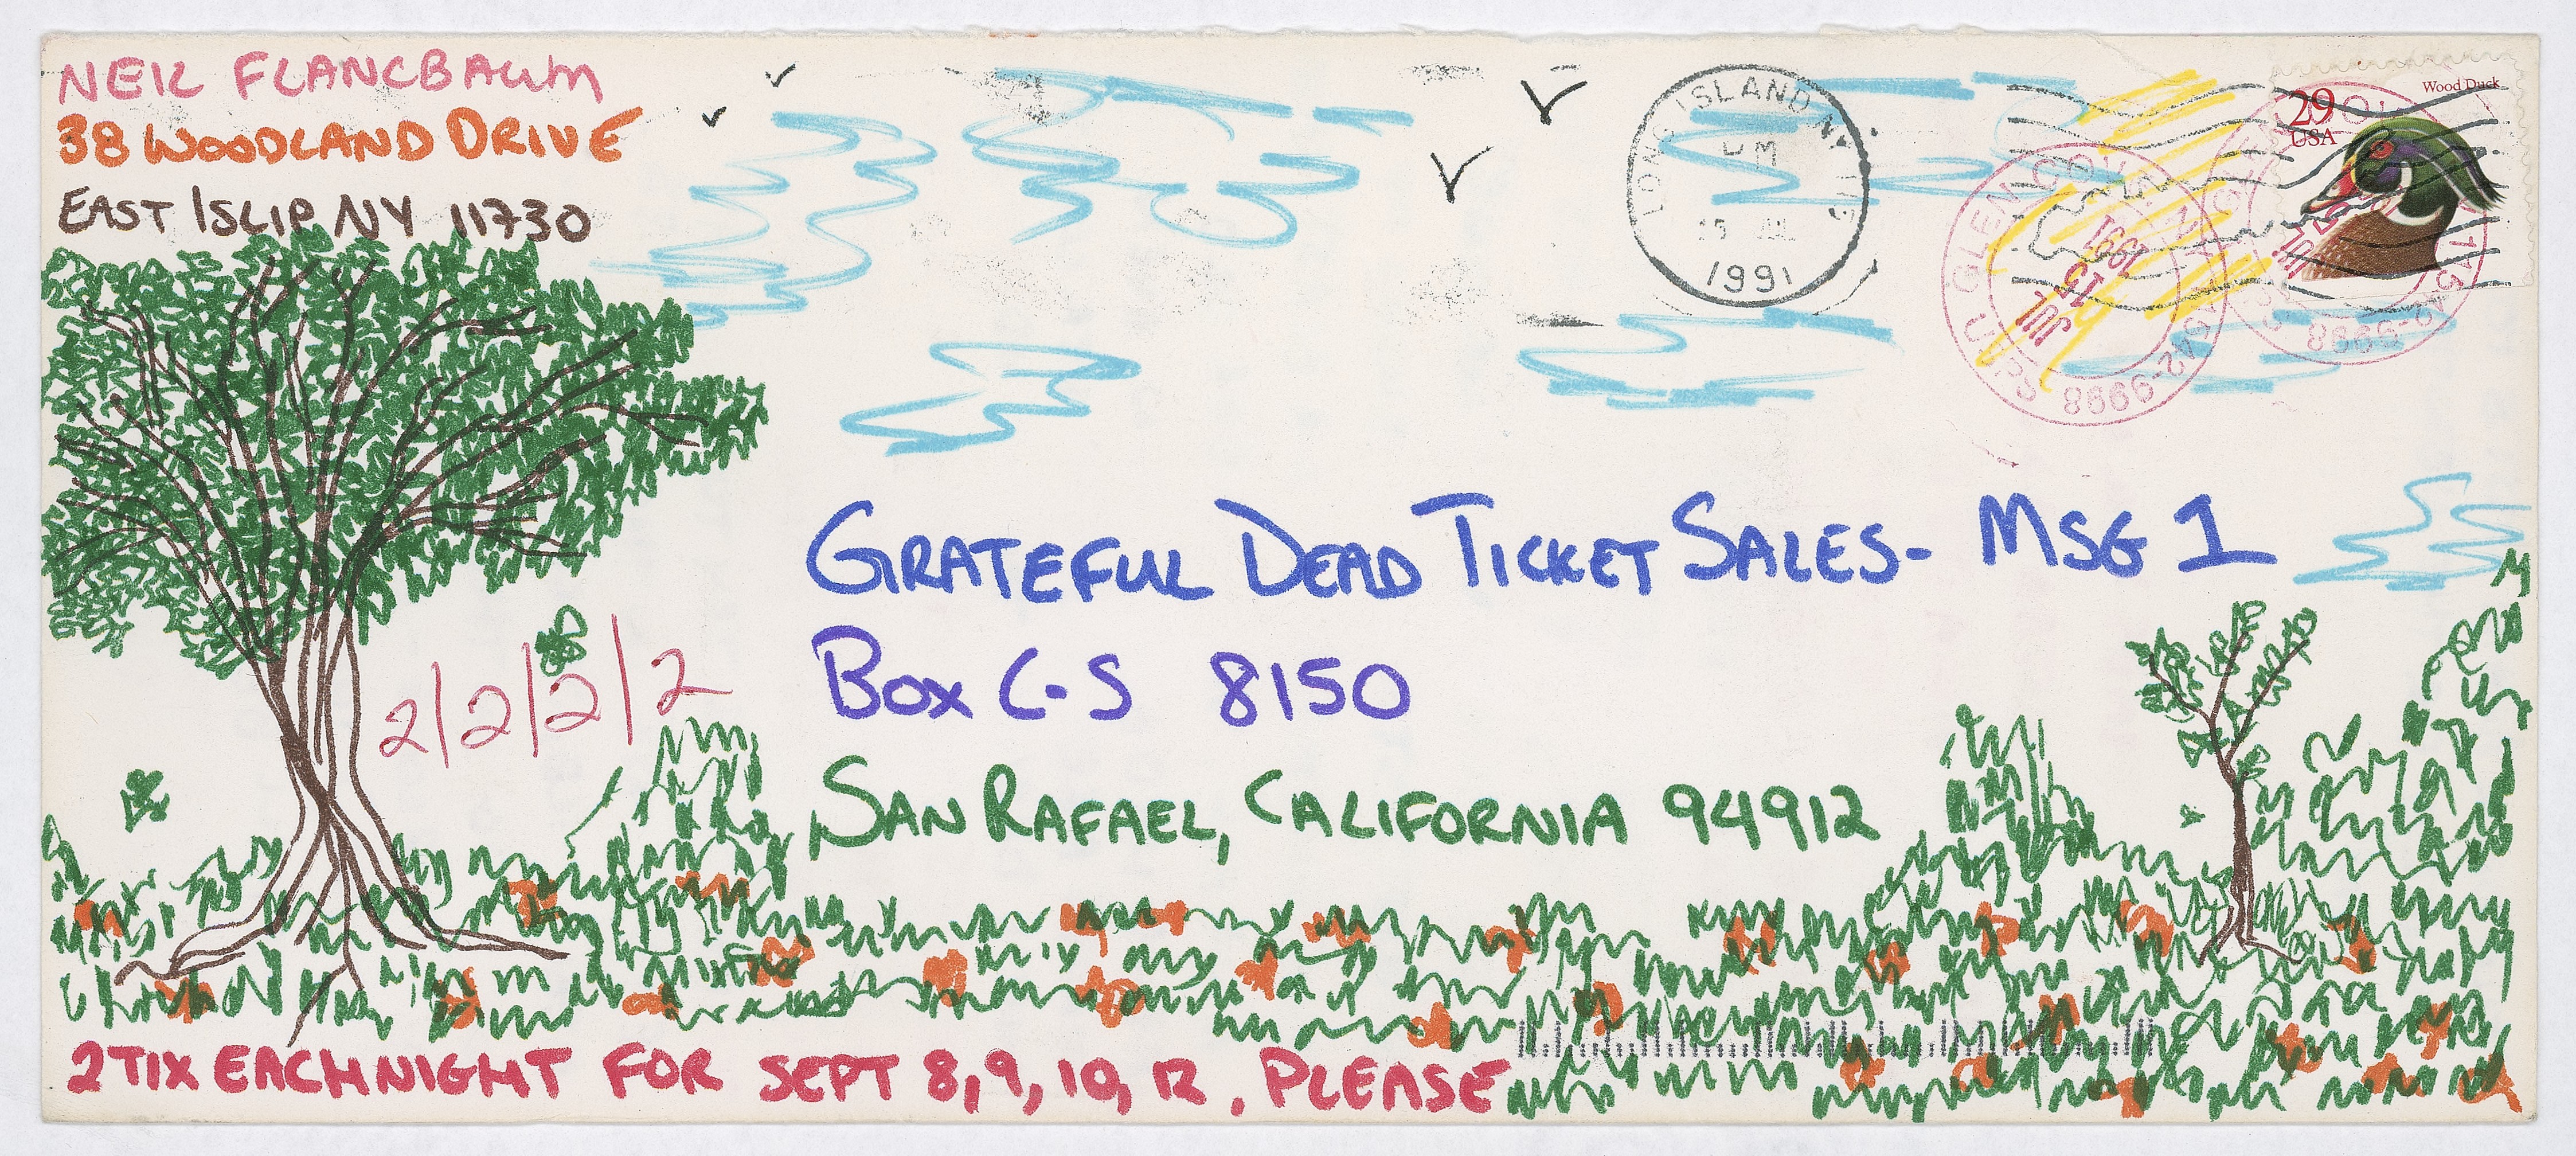 NEIL FLANCBAUM
38 WOODLAND DRIVE
EAST ISLIP NY 11730
LONG ISLAND NY 117
PM
15 JUL
1991
GLEN COVE NY 11542-9998
JUL 15 1991
USPO
Wood Duck
29
USA
GRATEFUL DEAD TICKET SALES- MSG 1
BOX C-S 8150
SAN RAFAEL, CALIFORNIA 94912
2/2/2/2
2 TIX EACH NIGHT FOR SEPT 8, 9, 10, 12, PLEASE